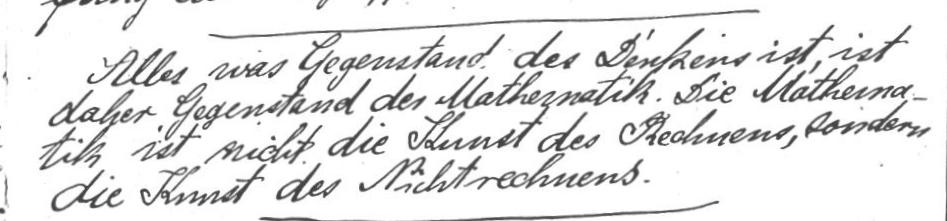 Alles was Gegenstand des Denkens ist, ist
daher Gegenstand der Mathematik. Die Mathema-
tik ist nicht die Kunst des Rechnens, sondern
die Kunst des Nichtrechnens.